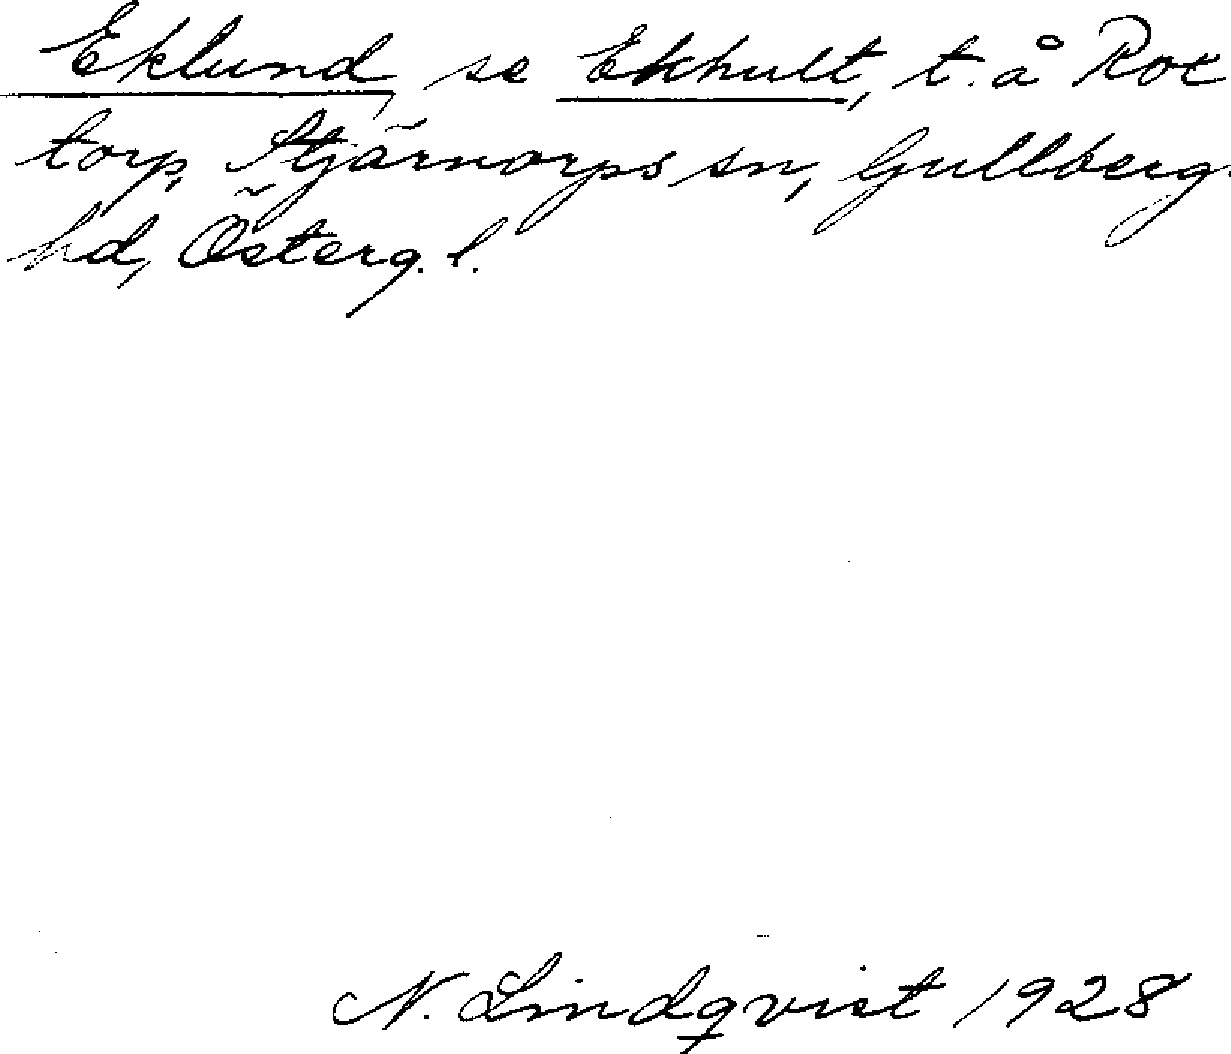 Eklund, se Ekhult, t. å Rox
torp, Stjärnorps sn, Gullbergs
hd, Österg. l.
N. Lindqvist 1928